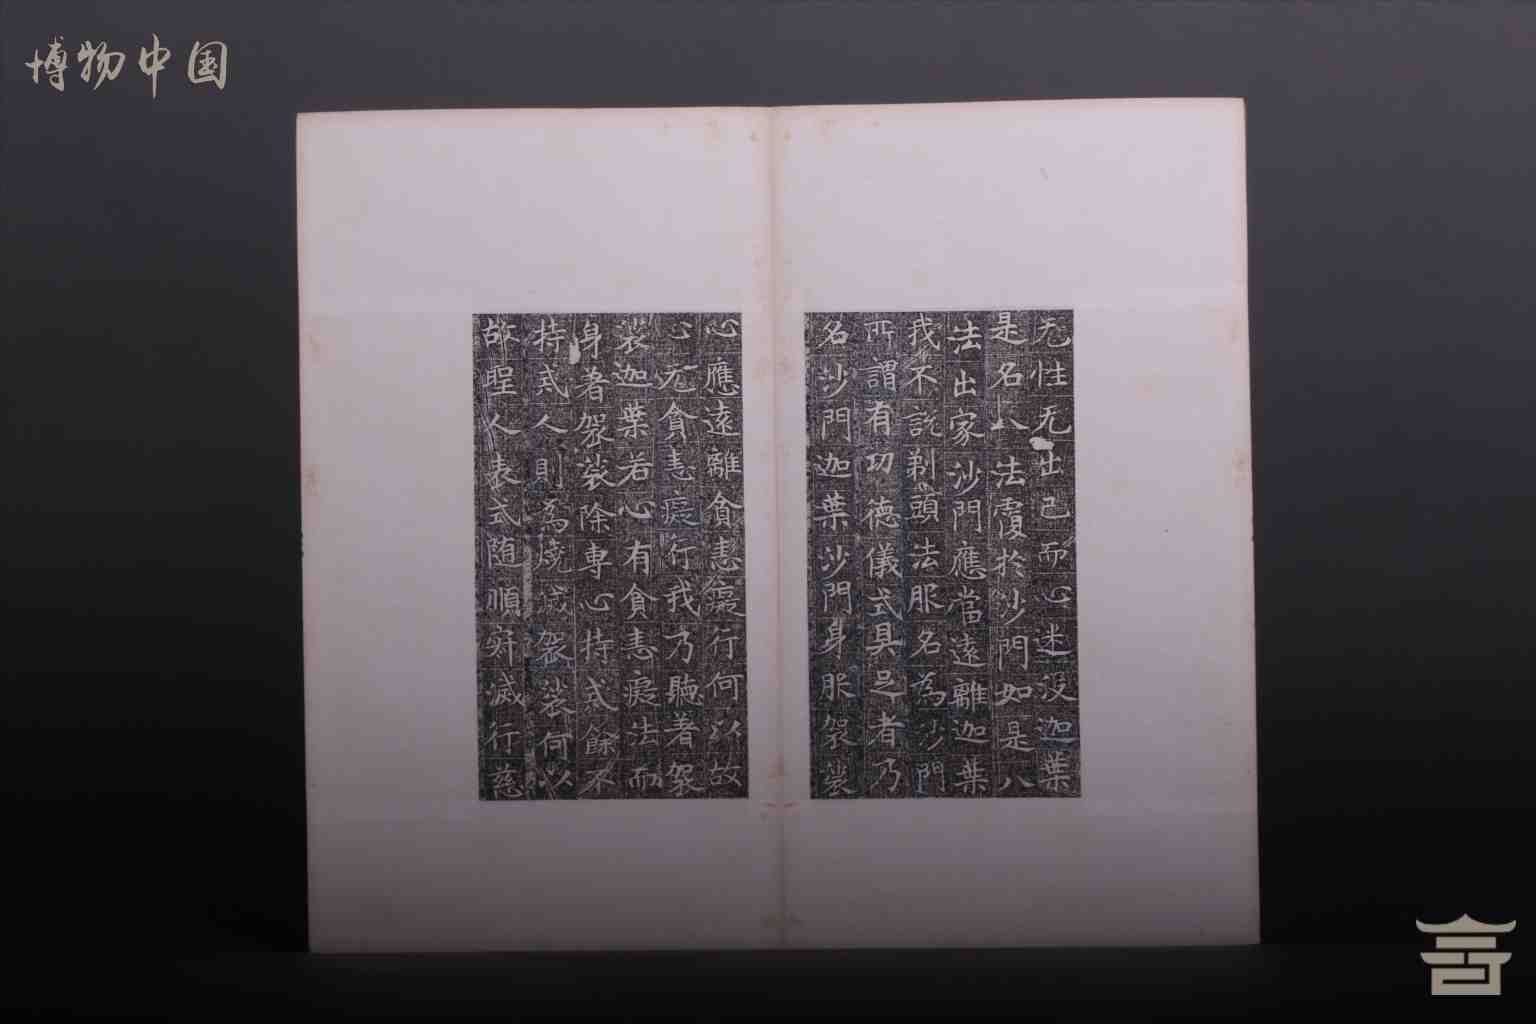 博物中国
无性无出己而心迷没迦葉
是名八法覆於沙門如是八
法出家沙門應當遠離迦葉
我不說剃頭法服名為沙門
所謂有功德儀式具足者乃
名沙門迦葉沙門身服袈裟
心應遠離貪恚癡行何以故
心无貪恚癡行我乃聽著袈
裟迦葉若心有貪恚癡法而
身著袈裟除專心持式餘不
持式人則為燒滅袈裟何以
故聖人表式随順寂滅行慈